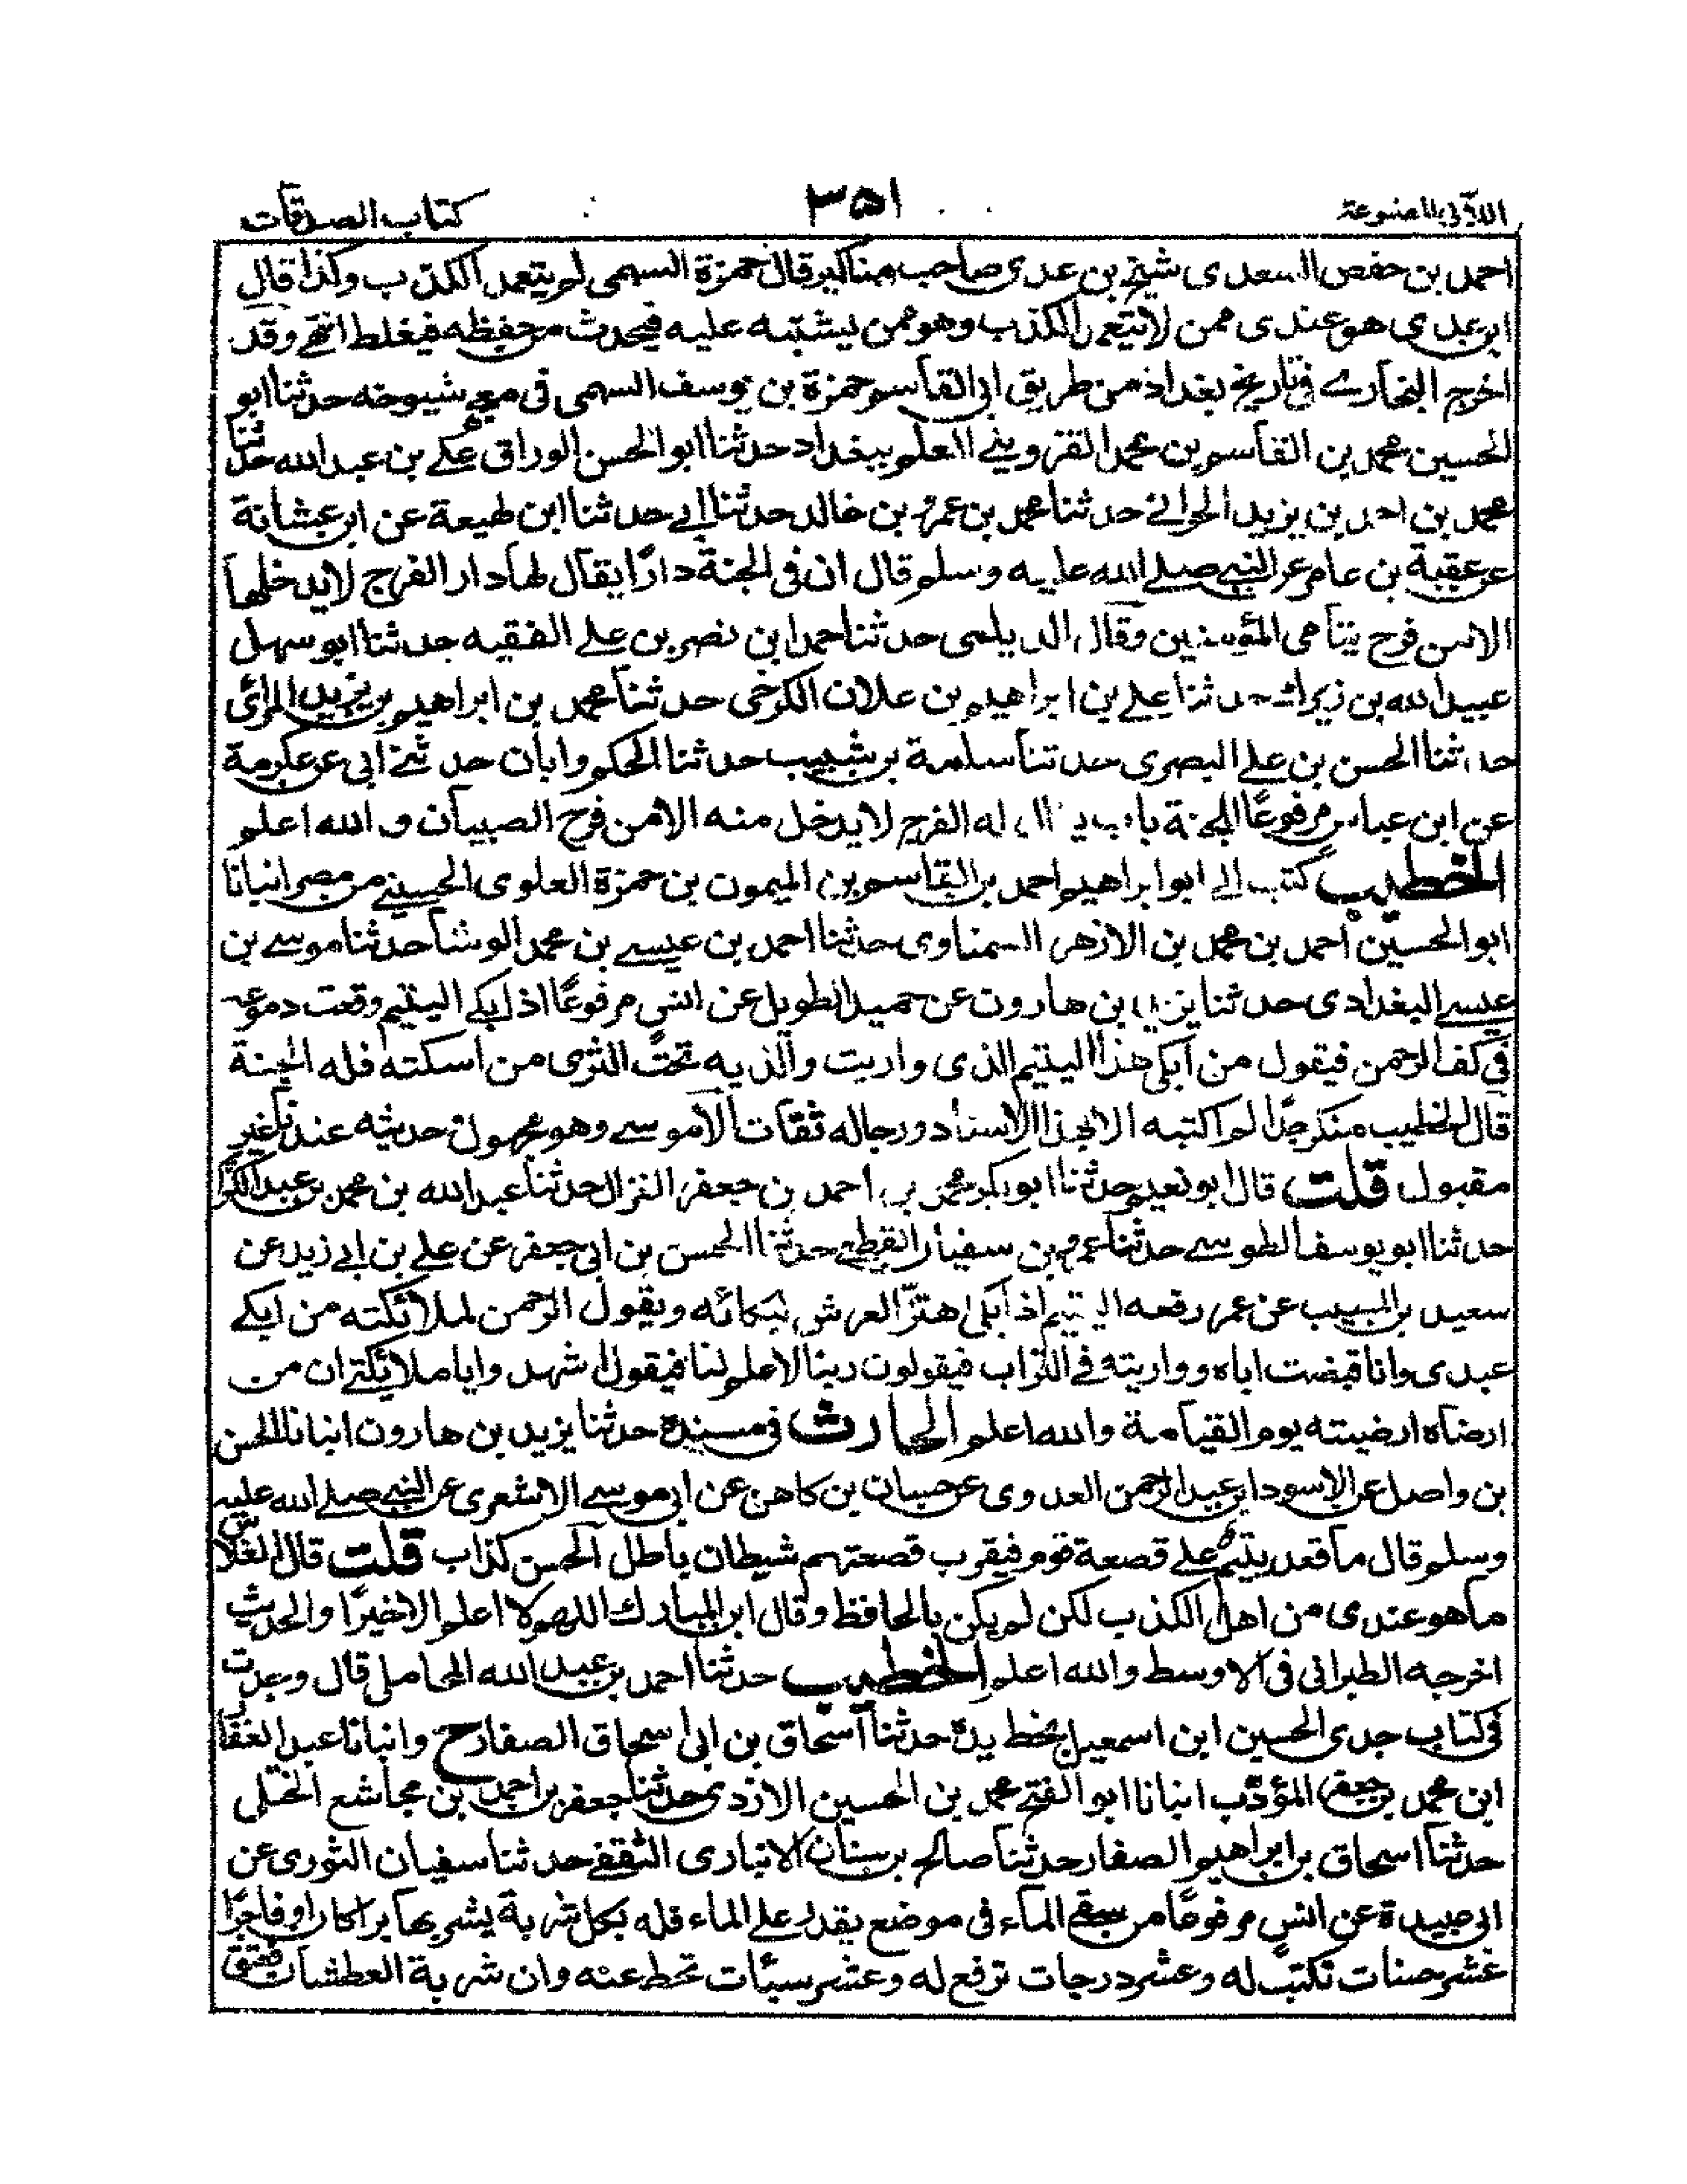 كتاب الصدقات ٣٥١ اللآلى المصنوعة
احمد بن حفص السعدى شيخ بن عدى صاحب مناكير قال حمزة السهمى لم يتعمد الكذب وكذا قال
ابن عدى هو عندى ممن لا يتعمد الكذب وهو ممن يشتبه عليه فيحدث من حفظه فيغلط انتهى وقد
اخرج البخارے فى تاريخ بغداد من طريق ابى القاسم حمزة بن يوسف السهمى فى معجم شيوخه حدثنا ابو
الحسين محمد بن القاسم بن محمد القزوينے المعلم ببغداد حدثنا ابو الحسن الوراق علے بن عبد الله حدثنا
محمد بن احمد بن يزيد الحرانے حدثنا محمد بن عمرو بن خالد حدثنا ابے حدثنا ابن لهيعة عن ابن عشانة
عن عقبة بن عامر عن النبے صلے الله عليه وسلم قال ان فى الجنة دارًا يقال لها دار الفرح لا يدخلها
الا من فرح يتامى المؤمنين وقال الديلمى حدثنا احمد ابن نصر بن علے الفقيه حدثنا ابو سهل
عبيد الله بن زيرك حدثنا علے بن ابراهيم بن علان الكرخى حدثنا محمد بن ابراهيم بن يزيد
حدثنا الحسن بن علے البصرى حدثنا سلمة بن شبيب حدثنا الحكم وابان حدثنے ابى عن عكرمة
عن ابن عباس مرفوعًا للجنة باب يقال له الفرح لا يدخل منه الا من فرح الصبيان و الله اعلم
الخطيب كتب الے ابو ابراهيم احمد بن القاسم بن الميمون بن حمزة العلوى الحسينے من مصر انبانا
ابو الحسين احمد بن محمد بن الازهر السمناوى حدثنا احمد بن عيسے بن محمد الوشا حدثنا موسے بن
عيسے البغدادى حدثنا يزيد بن هارون عن حميد الطويل عن انس مرفوعًا اذا بكے اليتيم وقعت دموعه
فى كف الرحمن فيقول من ابكى هذا اليتيم الذى واريت والديه تحت الثرى من اسكته فله الجنة
قال الخطيب منكر جدًا لم اكتبه الا بهذا الاسناد ورجاله ثقات الا موسے وهو مجهول حديثه عندنا غير
مقبول قلت قال ابو نعيم حدثنا ابو بكر محمد بن احمد بن جعفر الغزال حدثنا عبد الله بن محمد بن عبد الكريم
حدثنا ابو يوسف الطوسے حدثنا عمرو بن سفيان القطيعے حدثنا الحسن بن ابى جعفر عن علے بن ابے زيد عن
سعيد بن المسيب عن عمر رفعه اليتيم اذا بكى اهتز العرش لبكائه ويقول الرحمن لملائكته من ابكے
عبدى وانا قبضت اباه وواريته فے التراب فيقولون ربنا لا علم لنا فيقول اشهد وا يا ملائكتے ان من
ارضاه ارضيته يوم القيامة والله اعلم الحارث فى مسنده حدثنا يزيد بن هارون انبانا الحسن
بن واصل عن الاسود ابن عبد الرحمن العدوى عن حصان بن كاهن عن ابى موسے الاشعرى عن النبے صلے الله عليه
وسلم قال ما قعد يتيم علے قصعة قوم فيقرب قصعتهم شيطان باطل الحسن كذاب قلت قال الفلاس
ما هو عندى من اهل الكذب لكن لم يكن بالحافظ وقال ابن المبارك اللهم لا اعلم الا خيرًا والحديث
اخرجه الطبرانى فى الاوسط والله اعلم الخطيب حدثنا احمد بن عبيد الله المحاملى قال وجدت
فى كتاب جدى الحسين ابن اسمعيل بخط يده حدثنا اسحاق بن ابى اسحاق الصفار ح وانبانا عبد الغفار
ابن محمد بن جعفر المؤدب انبانا ابو الفتح محمد بن الحسين الازدى حدثنا جعفر بن احمد بن مجاشع الختلى
حدثنا اسحاق بن ابراهيم الصفار حدثنا صالح بن سنان الانبارى الثقفے حدثنا سفيان الثورى عن
ابى عبيدة عن انس مرفوعًا من سقے الماء فى موضع يقدر علے الماء فله بكل شربة يشربها برا كان او فاجرًا
عشر حسنات تكتب له وعشر درجات ترفع له وعشر سيئات تحط عنه وان شربة العطشان